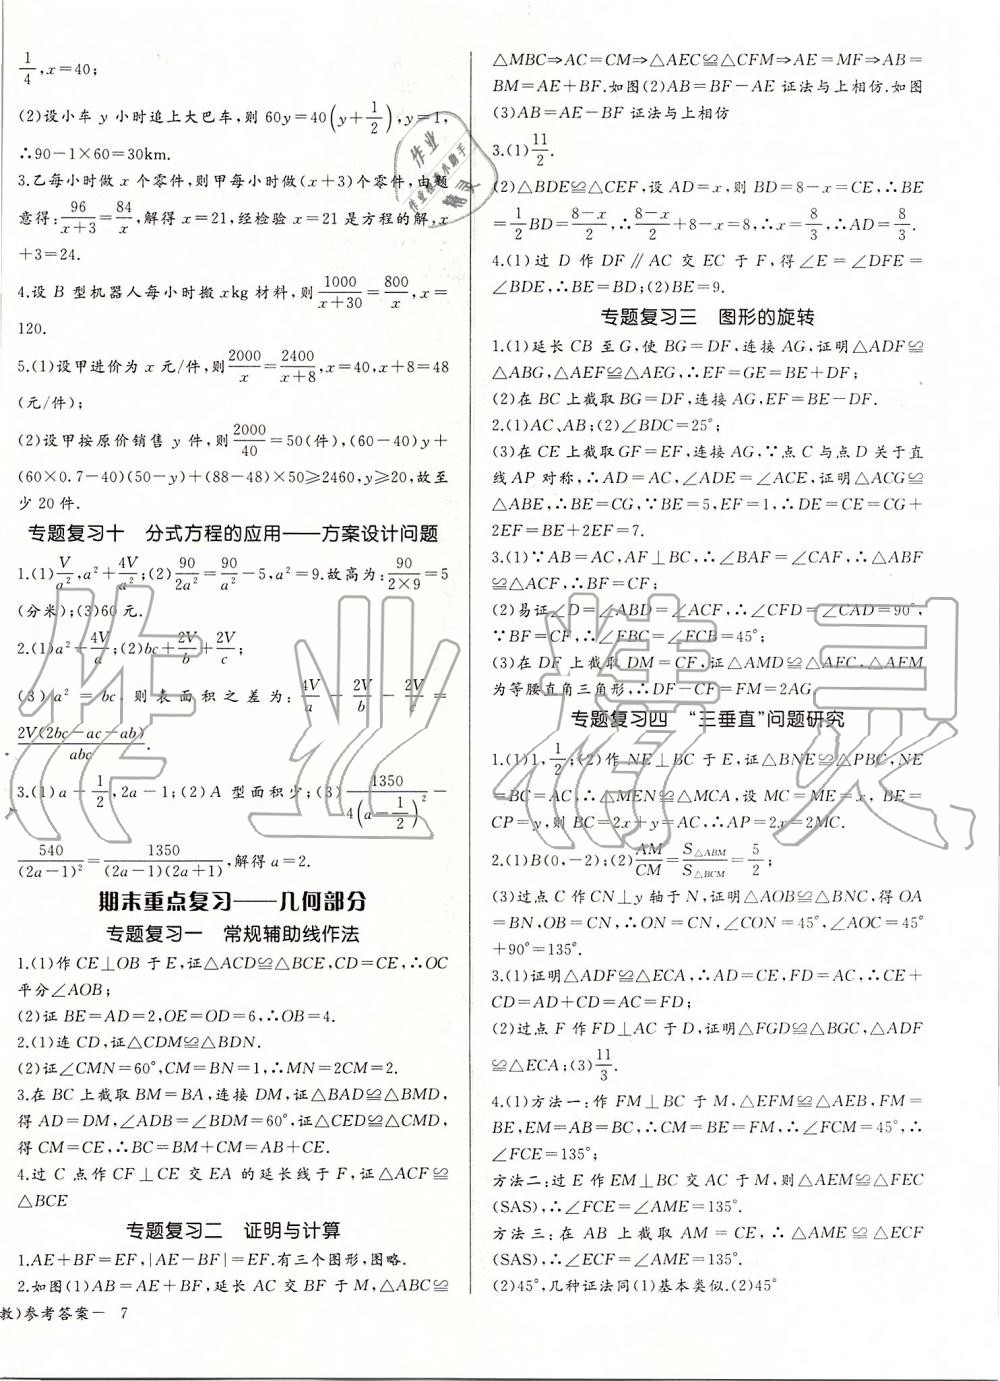 1/4,x=40;
(2)设小车 y 小时追上大巴车,则 60y=40(y+1/2),y=1,
∴90-1×60=30km.
3.乙每小时做 x 个零件,则甲每小时做(x+3)个零件,由题
意得:96/(x+3)=84/x,解得 x=21,经检验 x=21 是方程的解,x
+3=24.
4.设 B 型机器人每小时搬 xkg 材料,则 1000/(x+30)=800/x,x=
120.
5.(1)设甲进价为 x 元/件,则 2000/x=2400/(x+8),x=40,x+8=48
(元/件);
(2)设甲按原价销售 y 件,则 2000/40=50(件),(60-40)y+
(60×0.7-40)(50-y)+(88-48)×50≥2460,y≥20,故至
少 20 件.
专题复习十 分式方程的应用——方案设计问题
1.(1)V/a²,a²+4V/a;(2)90/2a²=90/a²-5,a²=9.故高为:90/(2×9)=5
(分米);(3)60元.
2.(1)a²+4V/a;(2)bc+2V/b+2V/c;
(3) a²=bc, 则表面积之差为: 4V/a-2V/b-2V/c=
2V(2bc-ac-ab)/abc.
3.(1)a-1/2,2a-1;(2)A 型面积少;(3)1350/4(a-1/2)²-
540/(2a-1)²=1350/(2a-1)(2a+1),解得 a=2.
期末重点复习——几何部分
专题复习一 常规辅助线作法
1.(1)作 CE⊥OB 于 E,证△ACD≌△BCE,CD=CE,∴OC
平分∠AOB;
(2)证 BE=AD=2,OE=OD=6,∴OB=4.
2.(1)连 CD,证△CDM≌△BDN.
(2)证∠CMN=60°,CM=BN=1,∴MN=2CM=2.
3.在 BC 上截取 BM=BA,连接 DM,证△BAD≌△BMD,
得 AD=DM,∠ADB=∠BDM=60°,证△CED≌△CMD,
得 CM=CE,∴BC=BM+CM=AB+CE.
4.过 C 点作 CF⊥CE 交 EA 的延长线于 F,证△ACF≌
△BCE
专题复习二 证明与计算
1.AE+BF=EF,|AE-BF|=EF.有三个图形,图略.
2.如图(1)AB=AE+BF,延长 AC 交 BF 于 M,△ABC≌
教)参考答案— 7
△MBC⇒AC=CM⇒△AEC≌△CFM⇒AE=MF⇒AB=
BM=AE+BF.如图(2)AB=BF-AE 证法与上相仿.如图
(3)AB=AE-BF 证法与上相仿
3.(1)11/2.
(2)△BDE≌△CEF,设 AD=x,则 BD=8-x=CE,∴BE=
1/2BD=(8-x)/2,∴(8-x)/2+8-x=8,∴x=8/3,∴AD=8/3.
4.(1)过 D 作 DF∥AC 交 EC 于 F,得∠E=∠DFE=
∠BDE,∴BE=BD;(2)BE=9.
专题复习三 图形的旋转
1.(1)延长 CB 至 G,使 BG=DF,连接 AG,证明△ADF≌
△ABG,△AEF≌△AEG,∴EF=GE=BE+DF;
(2)在 BC 上截取 BG=DF,连接 AG,EF=BE-DF.
2.(1)AC、AB;(2)∠BDC=25°;
(3)在 CE 上截取 GF=EF,连接 AG,∵点 C 与点 D 关于直
线 AP 对称,∴AD=AC,∠ADE=∠ACE,证明△ACG≌
△ABE,∴BE=CG,∵BE=5,EF=1,∴DE=CE=CG+
2EF=BE+2EF=7.
3.(1)∵AB=AC,AF⊥BC,∴∠BAF=∠CAF,∴△ABF
≌△ACF,∴BF=CF;
(2)易证∠D=∠ABD=∠ACF,∴∠CFD=∠CAD=90°,
∵BF=CF,∴∠FBC=∠FCB=45°;
(3)在 DF 上截取 DM=CF,证△AMD≌△AFC,△AFM
为等腰直角三角形,∴DF-CF=FM=2AG.
专题复习四 “三垂直”问题研究
1.(1)1,1/2;(2)作 NE⊥BC 于 E,证△BNE≌△PBC,NE
=BC=AC,∴△MEN≌△MCA,设 MC=ME=x, BE=
CP=y,则 BC=2x+y=AC,∴AP=2x=2MC.
2.(1)B(0,-2);(2)AM/CM=S△ABM/S△BCM=5/2;
(3)过点 C 作 CN⊥y 轴于 N,证明△AOB≌△BNC,得 OA
=BN,OB=CN,∴ON=CN,∠CON=45°,∠AOC=45°
+90°=135°.
3.(1)证明△ADF≌△ECA,∴AD=CE,FD=AC,∴CE+
CD=AD+CD=AC=FD;
(2)过点 F 作 FD⊥AC 于 D,证明△FGD≌△BGC,△ADF
≌△ECA;(3)11/3.
4.(1)方法一:作 FM⊥BC 于 M,△EFM≌△AEB,FM=
BE,EM=AB=BC,∴CM=BE=FM,∴∠FCM=45°,∴
∠FCE=135°;
方法二:过 E 作 EM⊥BC 交 AC 于 M,则△AEM≌△FEC
(SAS),∴∠FCE=∠AME=135°.
方法三:在 AB 上截取 AM=CE,∴△AME≌△ECF
(SAS),∴∠ECF=∠AME=135°.
(2)45°,几种证法同(1)基本类似.(2)45°
作业精灵